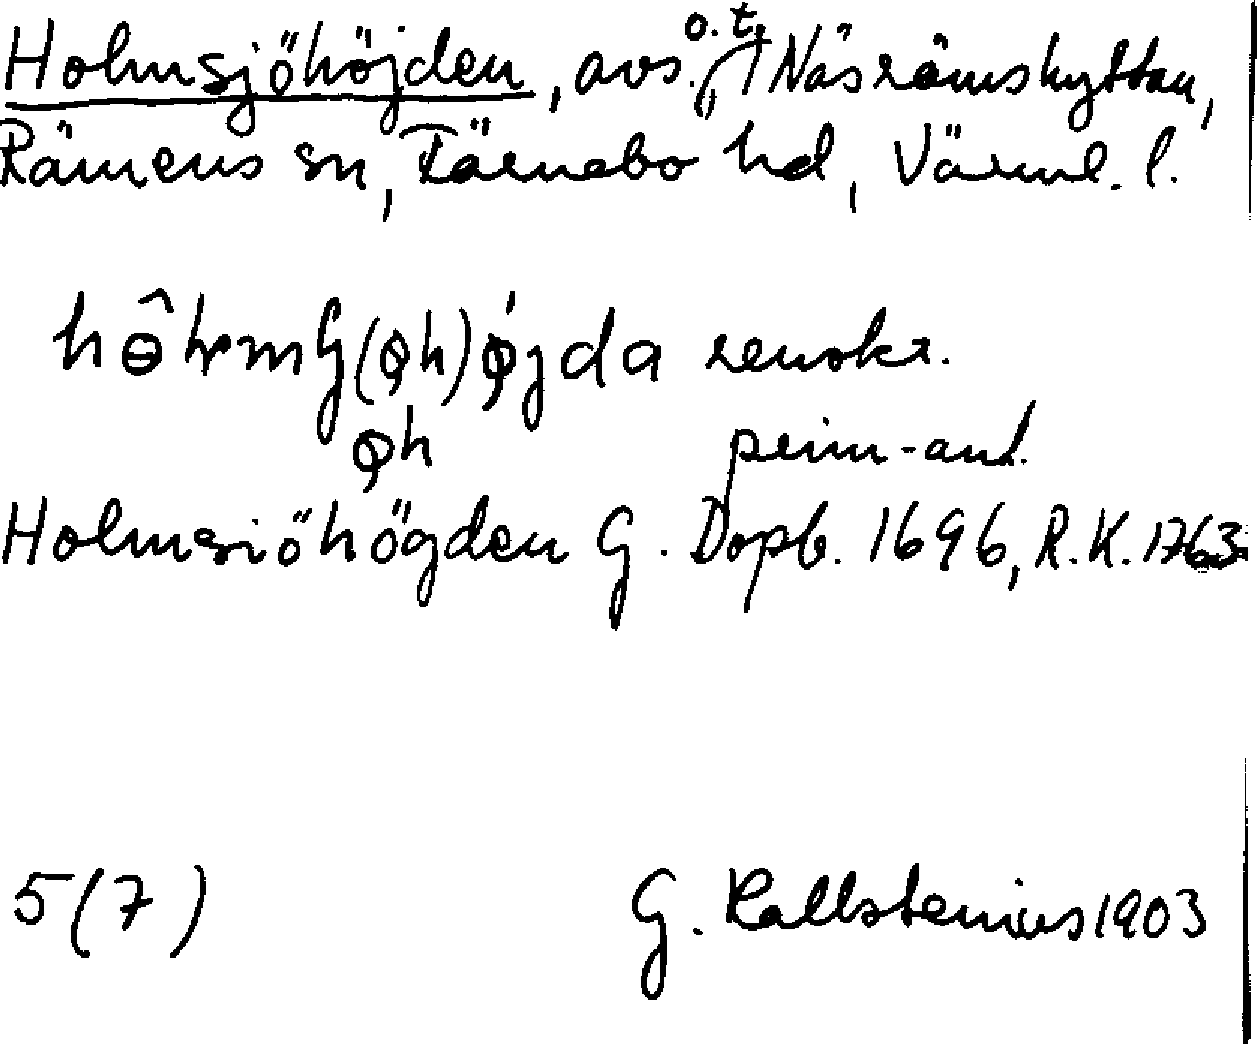 Holmsjöhöjden, avs. o.t. Näsrämshyttan,
Rämens sn, Färnebo hd, Värml. l.
renskr.
prim-ant.
Holmsiöhögden G. Dopb. 1696, R.K. 1763.
5(7) G. Kallstenius 1903